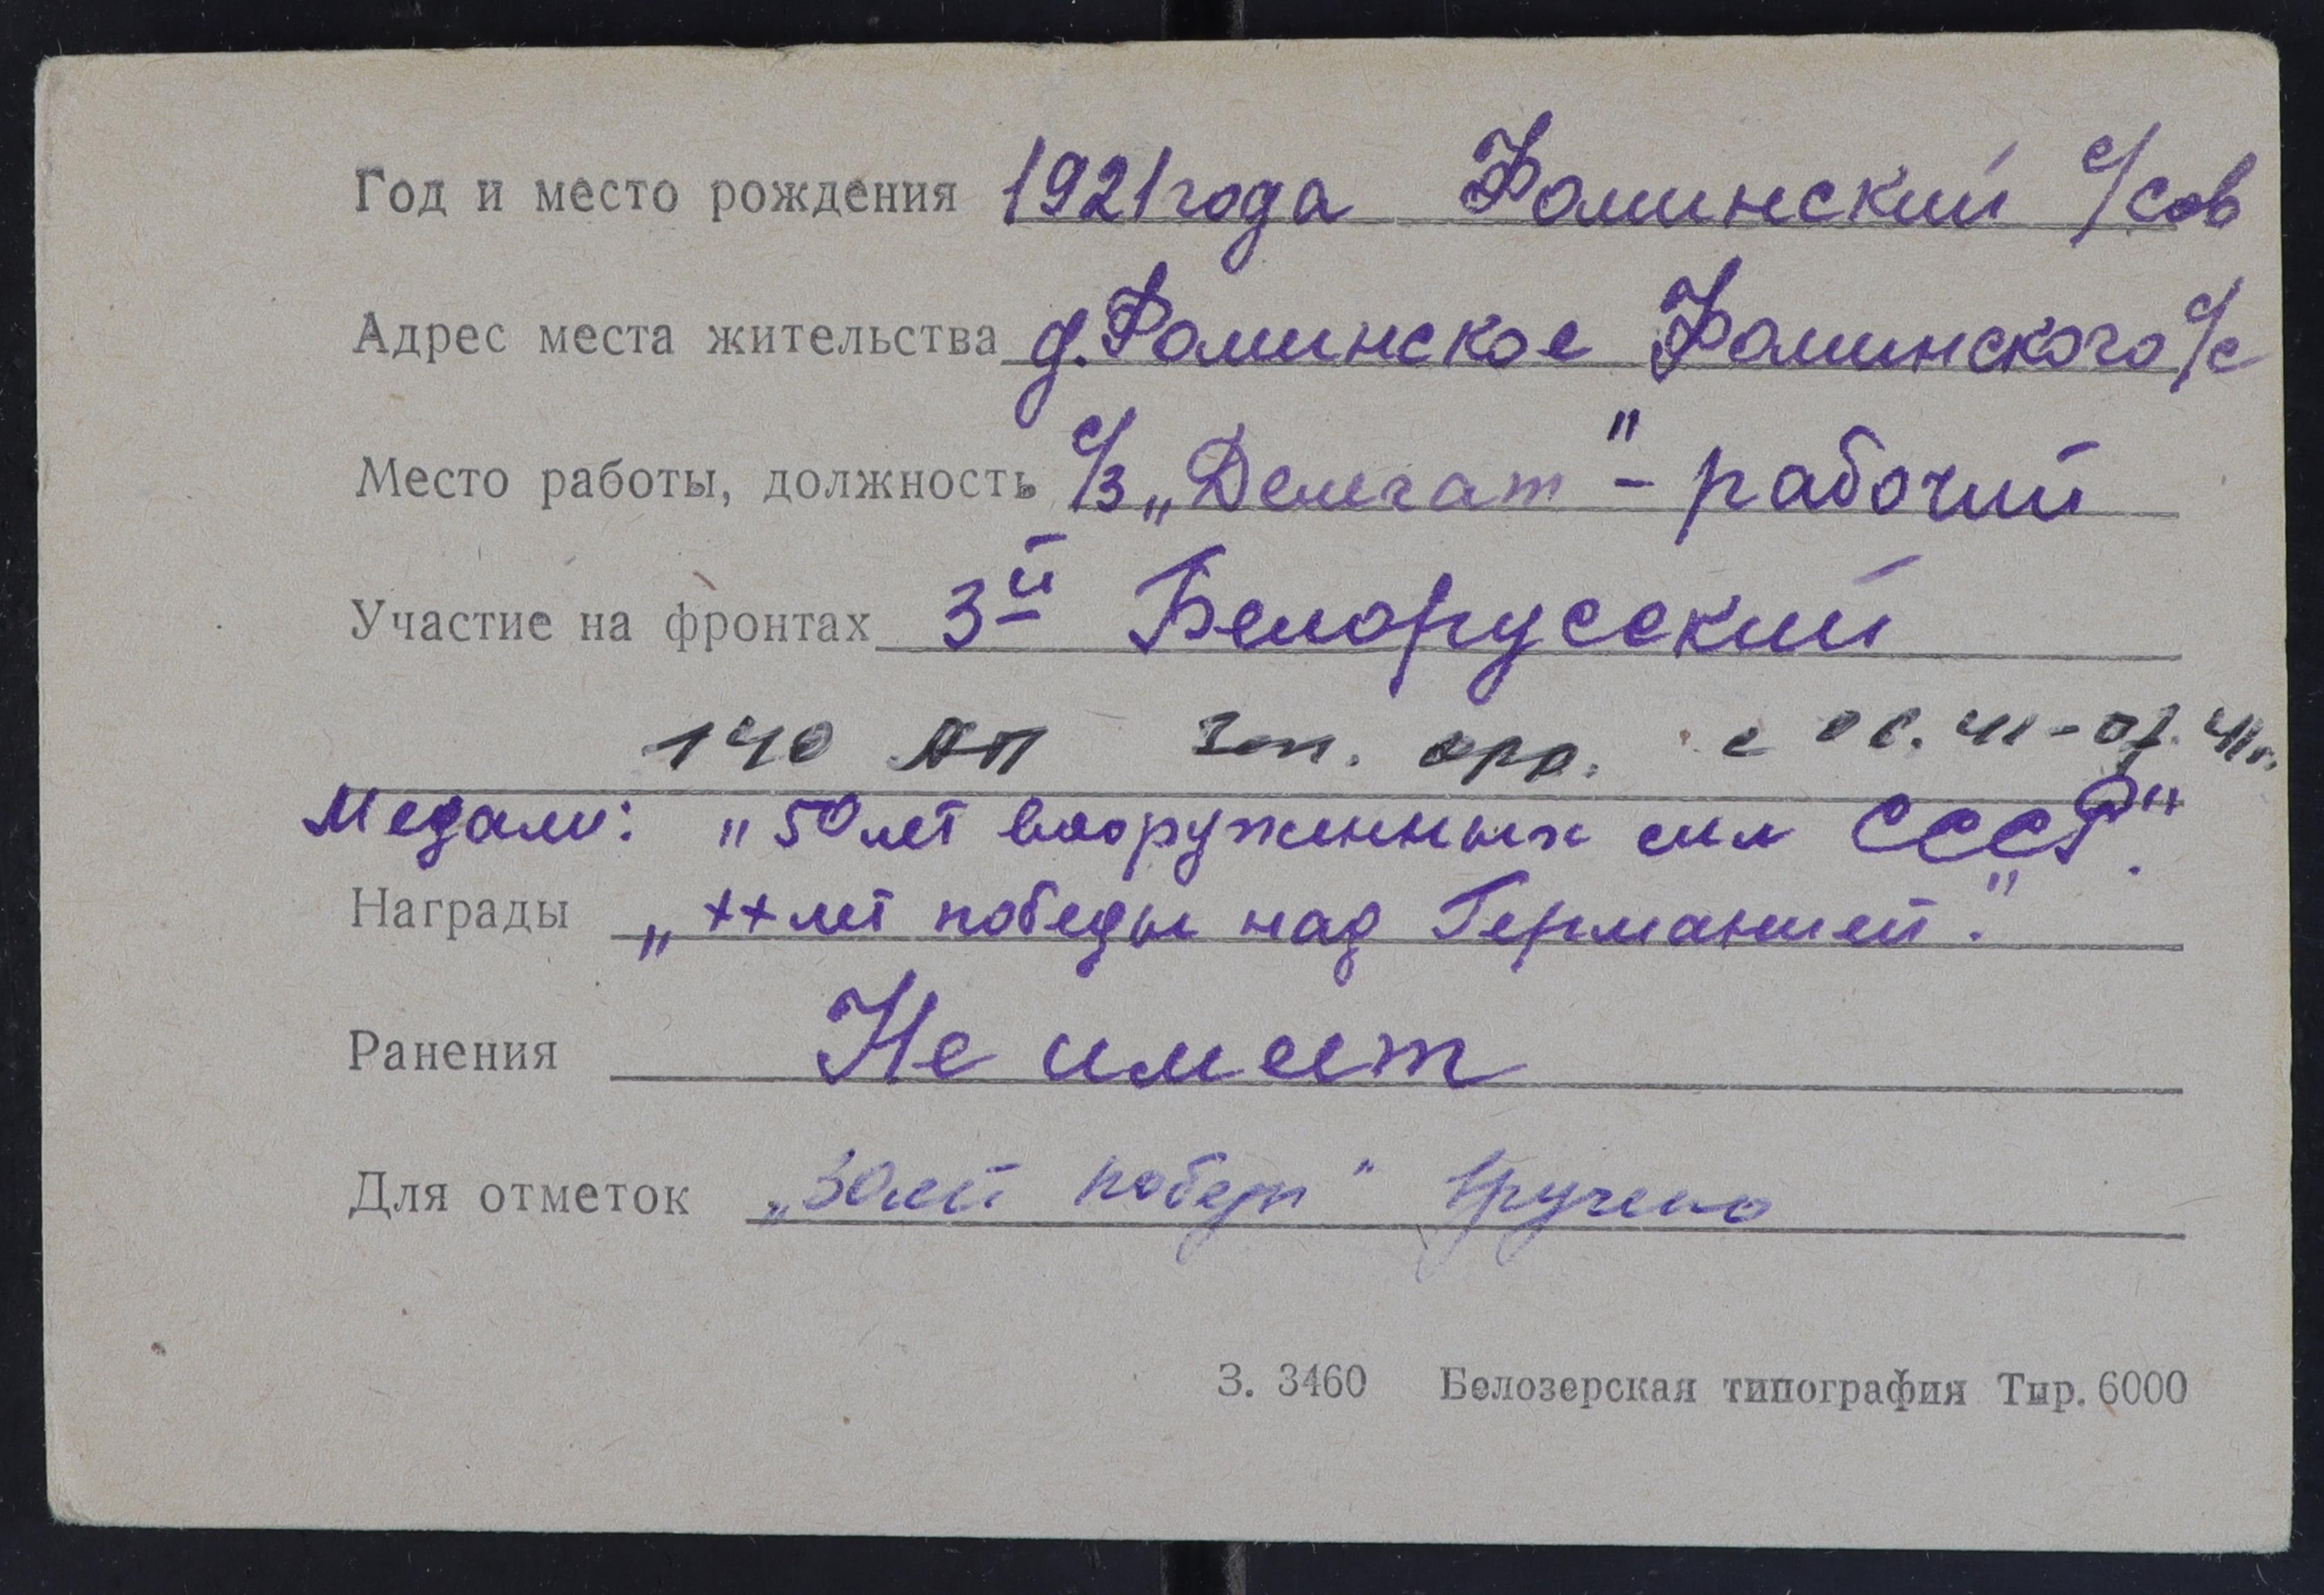 Год и место рождения 1921 года Фоминский с/сов
Адрес места жительства д. Фоминское Фоминского с/с
Место работы, должность с/з „Делегат" - рабочий
Участие на фронтах 3й Белорусский
140 АП Зап. фр. с 06.41-07.41г.
Медали: "50 лет вооруженных сил СССР".
Награды „ХХ лет победы над Германией".
Ранения Не имеет
Для отметок „30 лет победы" вручено
З. 3460 Белозерская типография Тыр. 6000